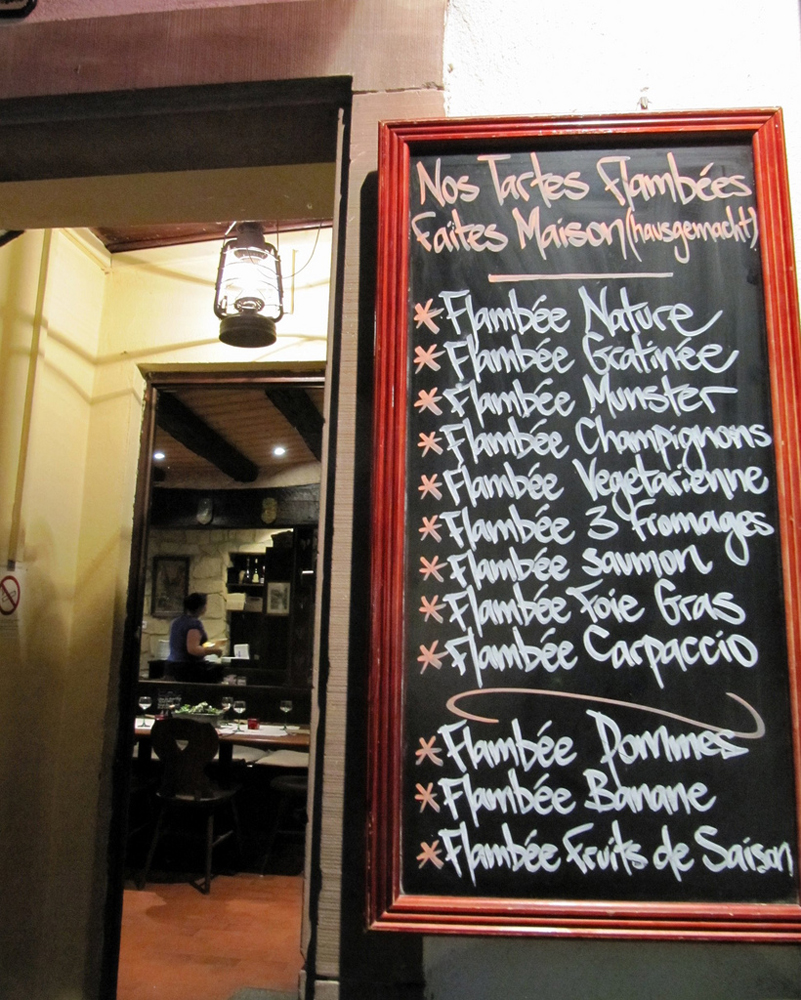 Nos Tartes Flambées
Faites Maison (hausgemacht)
* Flambée Nature
* Flambée Gratinée
* Flambée Munster
* Flambée Champignons
* Flambée Vegetarienne
* Flambée 3 Fromages
* Flambée saumon
* Flambée Foie Gras
* Flambée Carpaccio
* Flambée Pommes
* Flambée Banane
* Flambée Fruits de Saison